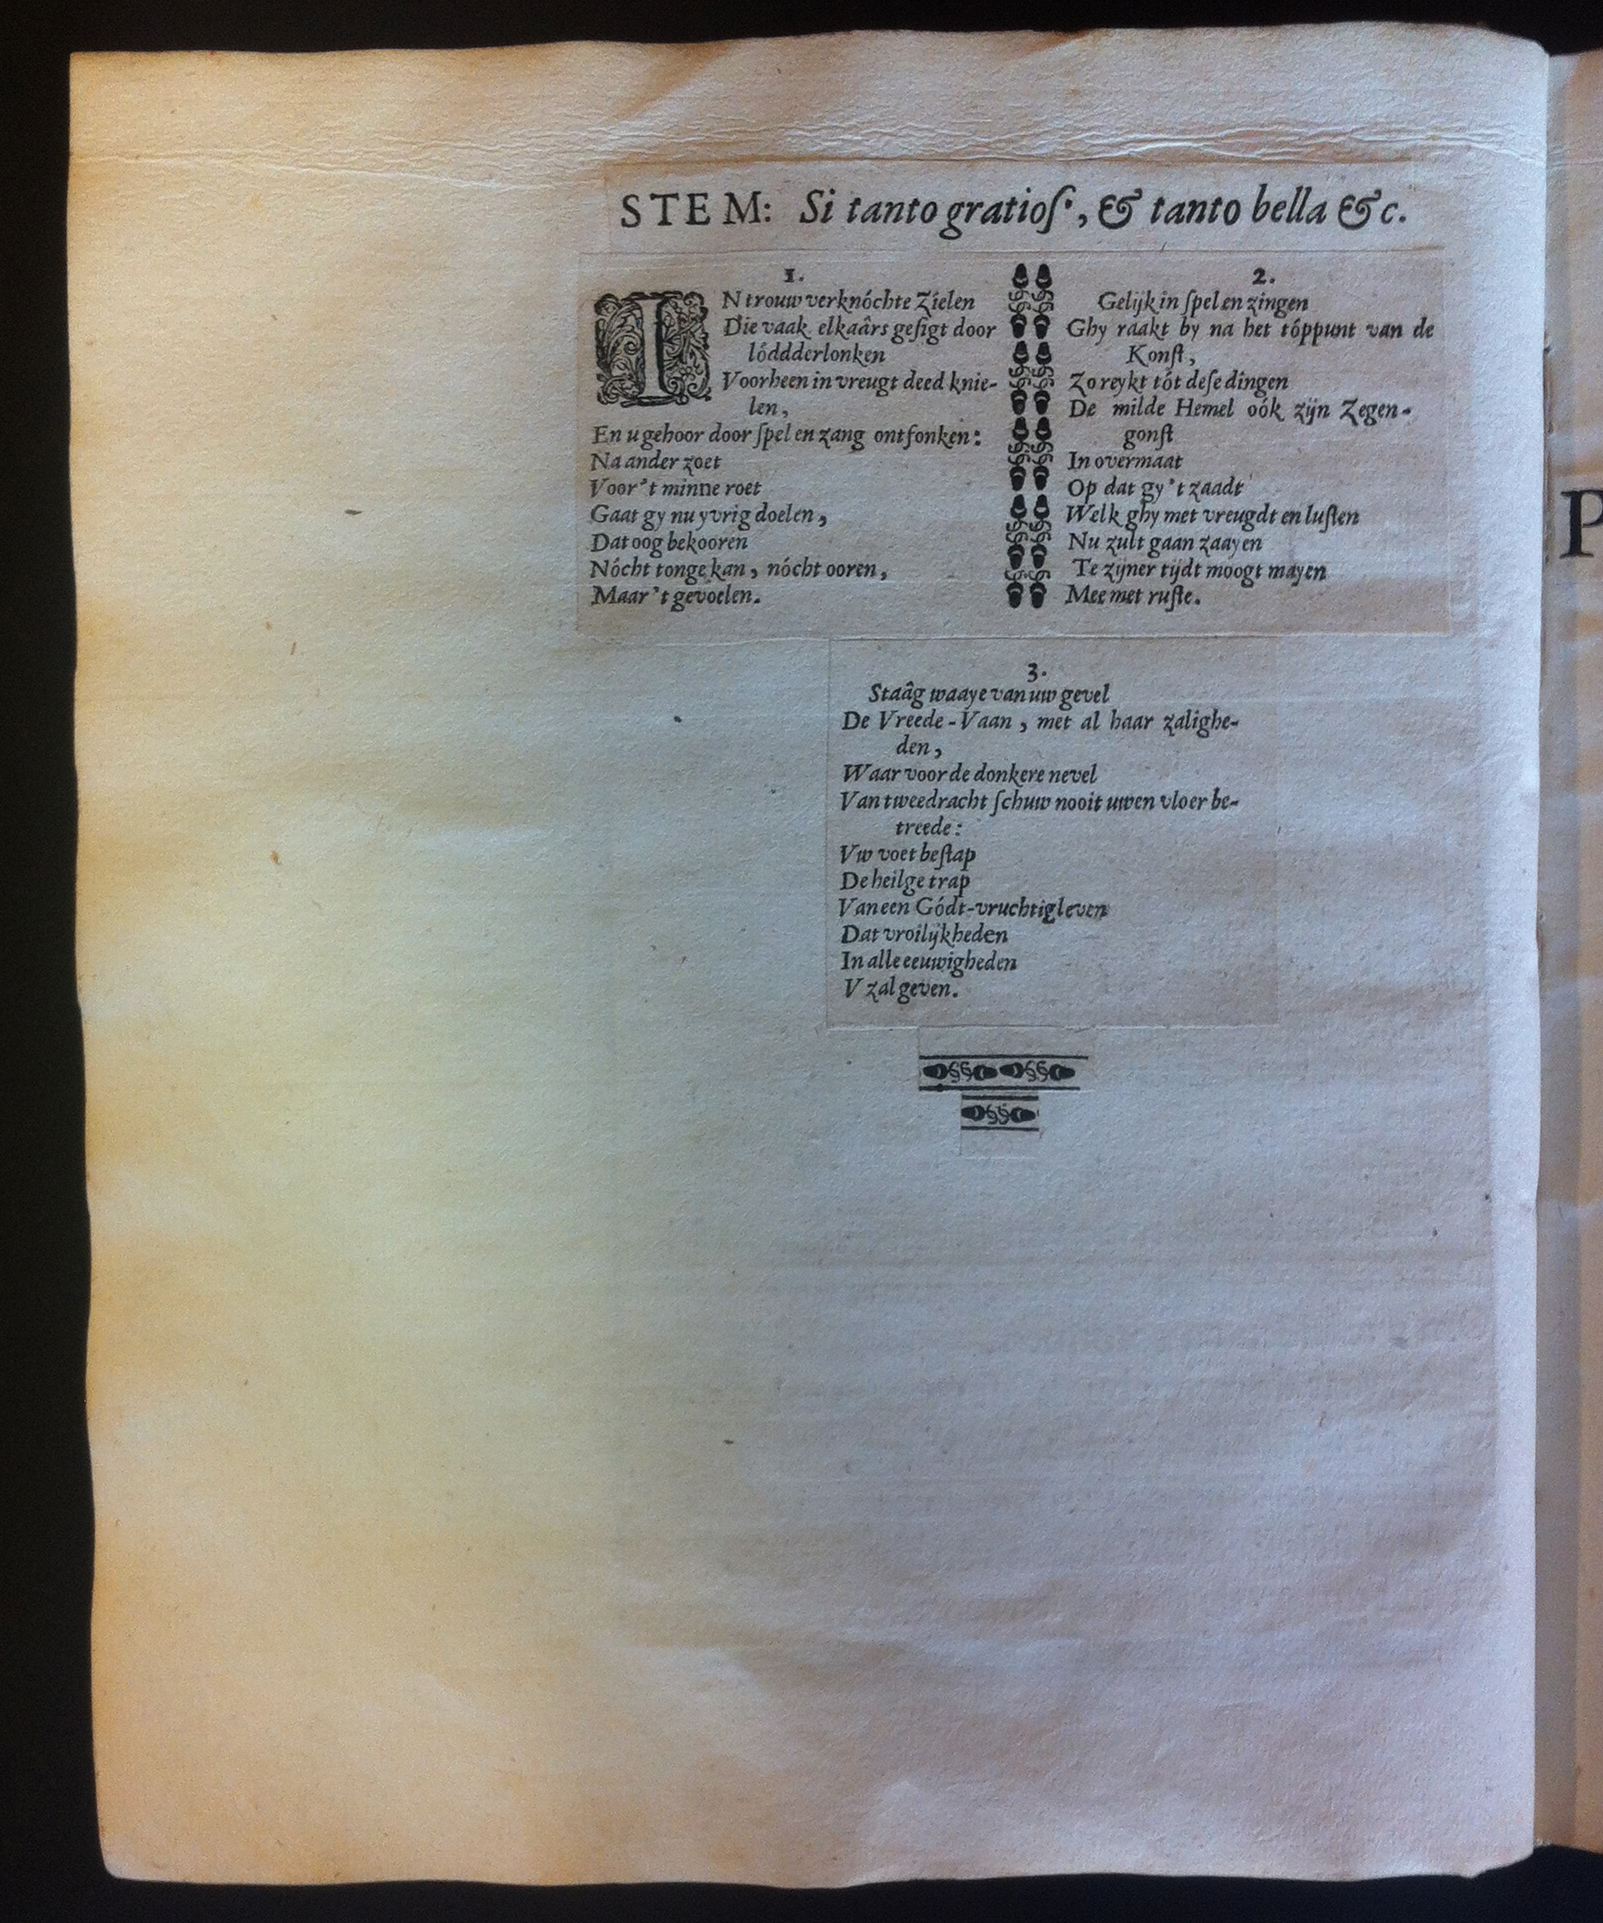 STEM: Si tanto gratioſ', & tanto bella &c.
1.
IN trouw verknóchte Zielen
Die vaak elkaârs geſigt door
lóddderlonken
Voorheen in vreugt deed knie-
len,
En u gehoor door ſpel en zang ontfonken:
Na ander zoet
Voor 't minne roet
Gaat gy nu yvrig doelen,
Dat oog bekooren
Nócht tonge kan, nócht ooren,
Maar 't gevoelen.
2.
Gelijk in ſpel en zingen
Ghy raakt by na het tóppunt van de
Konſt,
Zo reykt tót deſe dingen
De milde Hemel oók zijn Zegen-
gonſt
In overmaat
Op dat gy 't zaadt
Welk ghy met vreugdt en luſten
Nu zult gaan zaayen
Te zijner tijdt moogt mayen
Mee met ruſte.
3.
Staâg waaye van uw gevel
De Vreede-Vaan, met al haar zalighe-
den,
Waar voor de donkere nevel
Van tweedracht ſchuw nooit uwen vloer be-
treede:
Vw voet beſtap
De heilge trap
Van een Gódt-vruchtig leven
Dat vroilijkheden
In alle eeuwigheden
V zal geven.
P